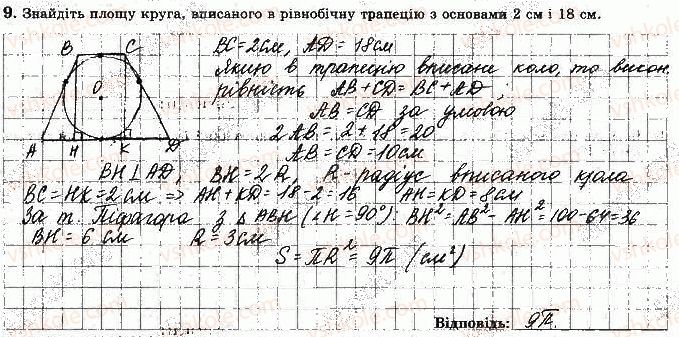 9. Знайдіть площу круга, вписаного в рівнобічну трапецію з основами 2 см і 18 см.
B C
O
A H K D
BC = 2см, AD = 18см
Якщо в трапецію вписане коло, то викон.
рівність AB + CD = BC + AD,
AB = CD за умовою
2AB = 2 + 18 = 20
AB = CD = 10см
BH ⊥ AD, BH = 2R, R - радіус вписаного кола
BC = HK = 2см => AH + KD = 18 - 2 = 16 AH = KD = 8см
За т. Піфагора з △ABH (∠H = 90°): BH² = AB² - AH² = 100 - 64 = 36
BH = 6 см R = 3см
S = πR² = 9π (см²)
Відповідь: 9π.